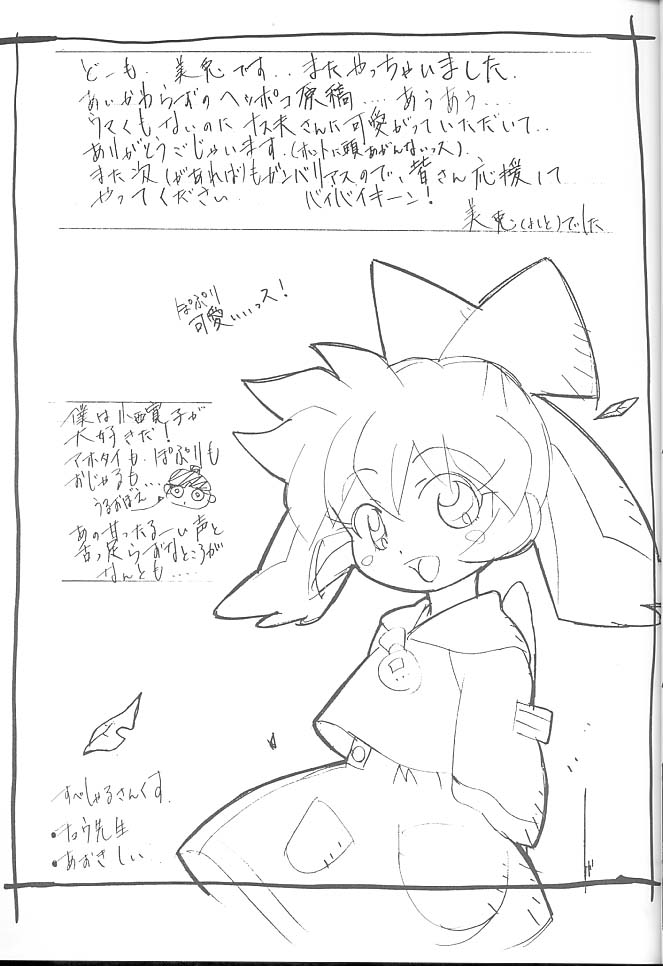 どーも. 美兎です.. またやっちゃいました.
あいかわらずのヘッポコ原稿.... あうあう....
ウマくもないのに 大夫さんに可愛がっていただいて..
ありがとうごじゃいます.(ホントに頭あがんないっス).
また次(があれば)もガンバリマスので、皆さん応援して
やってください. バイバイキーン!
美兎(よしと)でした
ぽぷり
可愛いいっス!
僕は小西寛子が
大好きだ!
マホタイも. ぽぷりも
おじゃるも...
うろおぼえ
あの甘ったるーい声と
舌っ足らずなところが
なんとも....
すぺしゃるさんくす.
•チョウ先生
•あおきしい